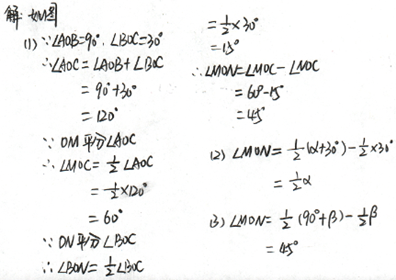 解:如图
(1) ∵∠AOB=90°,∠BOC=30°
∴∠AOC=∠AOB+∠BOC
=90°+30°
=120°
∵OM平分∠AOC
∴∠MOC=½∠AOC
=½×120°
=60°
∵ON平分∠BOC
∴∠BON=½∠BOC
=½×30°
=15°
∴∠MON=∠MOC-∠NOC
=60°-15°
=45°
(2) ∠MON=½(α+30°)-½×30°
=½α
(3) ∠MON=½(90°+β)-½β
=45°